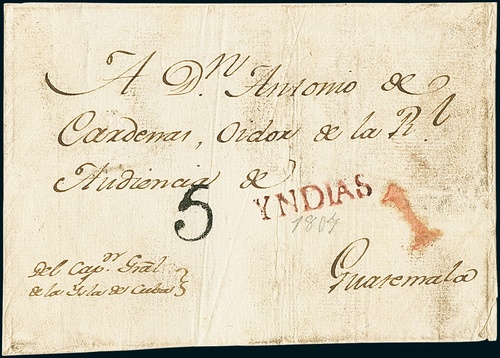 A D.n Antonio de
Cardenas, Oidor de la R.l
Audiencia de
5 YNDIAS 1
1804
Guatemala
del Cap.n Gral
de la Ysla de Cuba